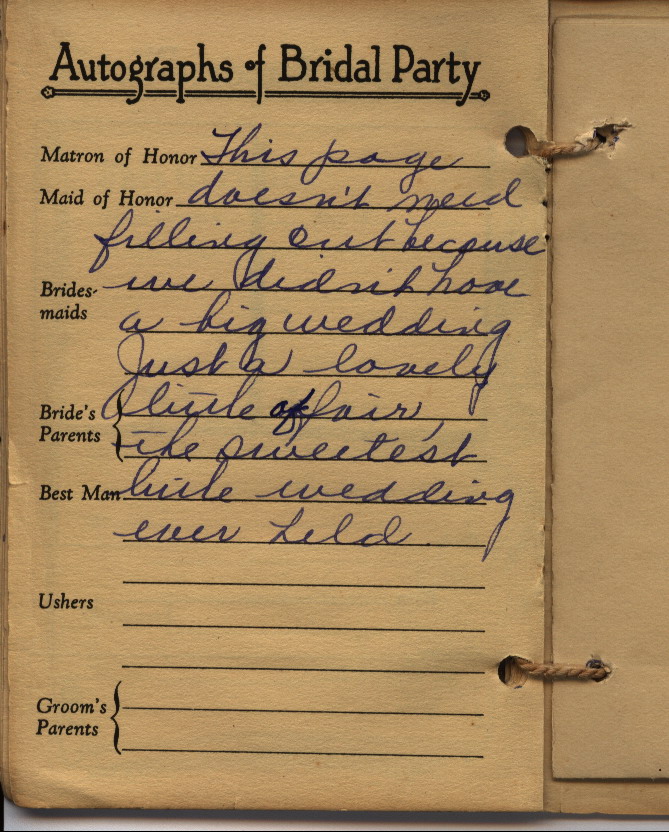 Autographs of Bridal Party
Matron of Honor This page
Maid of Honor doesn't need
filling out because
Brides- we didn't have
maids
a big wedding
Just a lovely
Bride's little affair,
Parents the sweetest
Best Man little wedding
ever held.
Ushers
Groom's
Parents